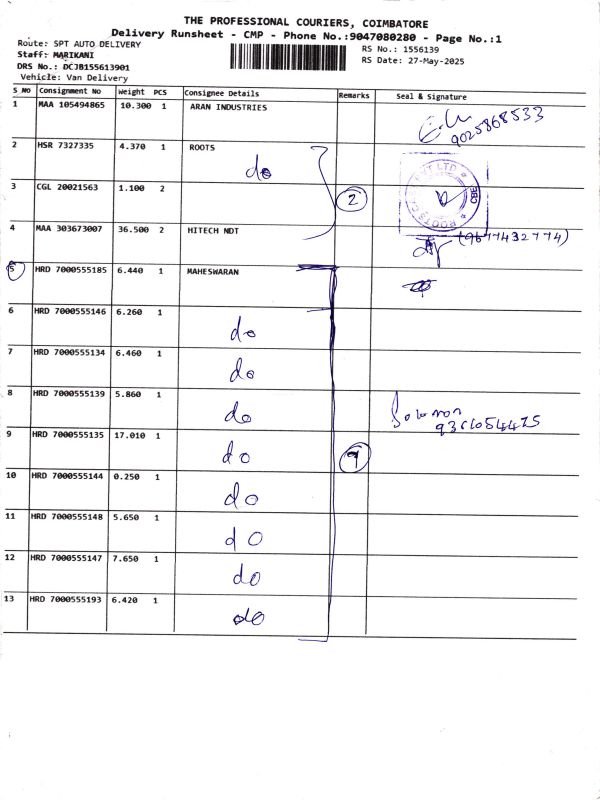 THE PROFESSIONAL COURIERS, COIMBATORE
Delivery Runsheet - CMP - Phone No.:9047080280 - Page No.:1
Route: SPT AUTO DELIVERY
RS No.: 1556139
Staff: MARIKANI
RS Date: 27-May-2025
DRS No.: DCJB155613901
Vehicle: Van Delivery
S No Consignment No Weight PCS Consignee Details Remarks Seal & Signature
1 MAA 105494865 10.300 1 ARAN INDUSTRIES
9025868533
2 HSR 7327335 4.370 1 ROOTS
do
3 CGL 20021563 1.100 2
2
PVT LTD
ROOTS
CBE
4 MAA 303673007 36.500 2 HITECH NDT
(9677432774)
5 HRD 7000555185 6.440 1 MAHESWARAN
6 HRD 7000555146 6.260 1
do
7 HRD 7000555134 6.460 1
do
8 HRD 7000555139 5.860 1
do
9 HRD 7000555135 17.010 1
do
9
10 HRD 7000555144 0.250 1
do
11 HRD 7000555148 5.650 1
do
12 HRD 7000555147 7.650 1
do
13 HRD 7000555193 6.420 1
do